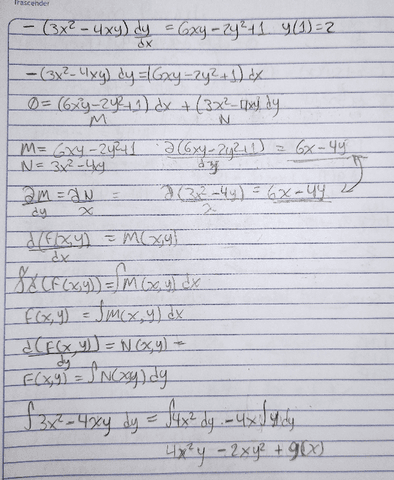 Trascender
-(3x²-4xy) dy/dx = 6xy-2y²+1 y(1)=2
-(3x²-4xy) dy = (6xy-2y²+1) dx
0 = (6xy-2y²+1) dx + (3x²-4xy) dy
M N
M = 6xy-2y²+1 ∂(6xy-2y²+1)/dy = 6x-4y
N = 3x²-4y
∂M/dy = ∂N/x = ∂(3x²-4y) = 6x-4y
d(F(x,y))/dx = M(x,y)
∫d(F(x,y)) = ∫M(x,y) dx
F(x,y) = ∫M(x,y) dx
d(F(x,y))/dy = N(x,y) =
F(x,y) = ∫N(x,y) dy
∫3x²-4xy dy = ∫4x² dy - 4x∫y dy
4x²y - 2xy² + g(x)